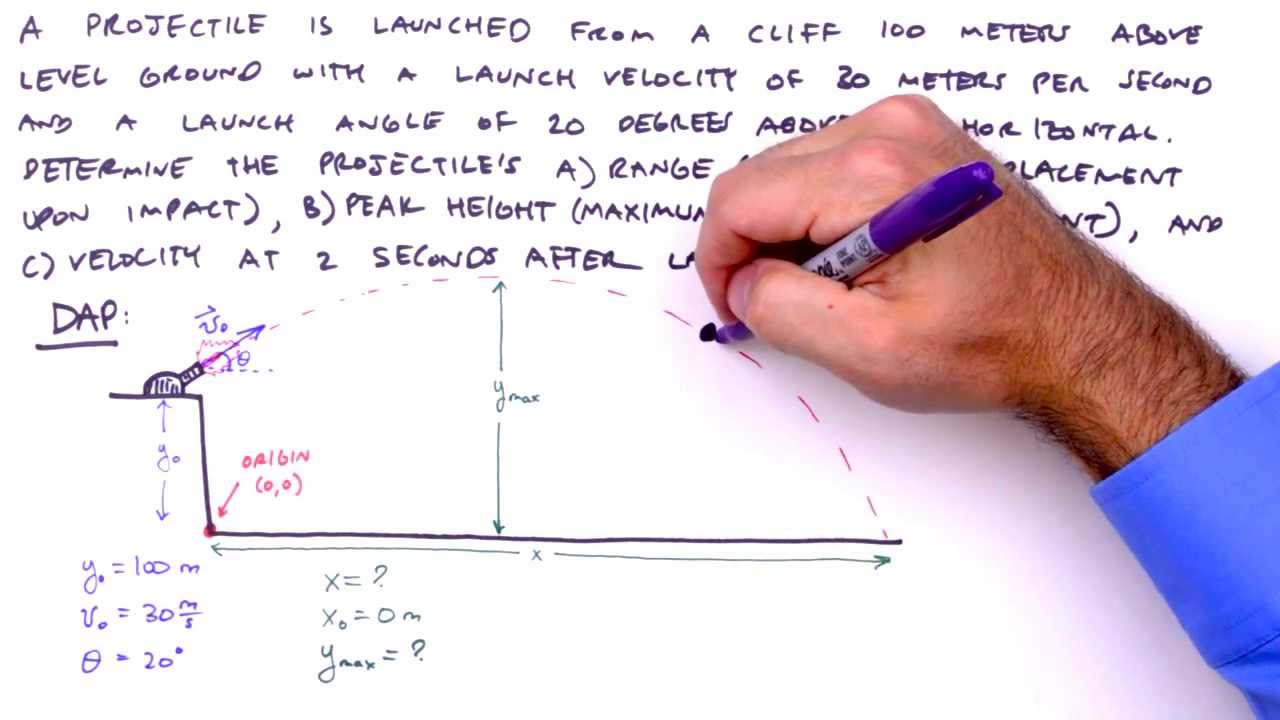 A PROJECTILE IS LAUNCHED FROM A CLIFF 100 METERS ABOVE
LEVEL GROUND WITH A LAUNCH VELOCITY OF 30 METERS PER SECOND
AND A LAUNCH ANGLE OF 20 DEGREES HORIZONTAL.
DETERMINE THE PROJECTILE'S A) RANGE
UPON IMPACT), B) PEAK HEIGHT ), AND
C) VELOCITY AT 2 SECONDS AFTER
DAP:
v⃗₀
θ
y max
y₀
ORIGIN
(0,0)
x
y₀ = 100 m
v₀ = 30 m/s
θ = 20°
x = ?
x₀ = 0 m
y max = ?